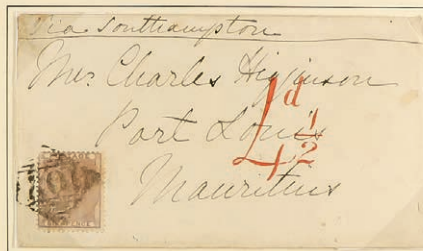 Via Southampton
Mrs. Charles Higginson
4d 1/2
Port Louis
Mauritius